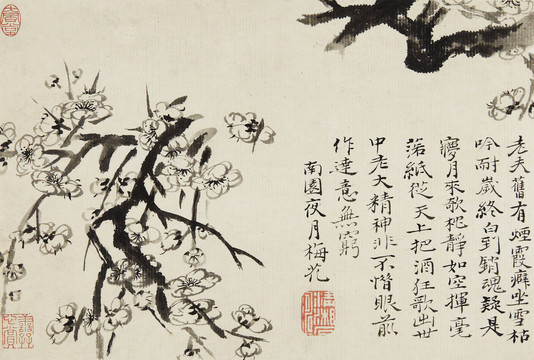 老夫舊有煙霞癖坐雪枯
吟耐歲終白到銷魂疑是
夢月來歌桃靜如空揮毫
落紙從天上把酒狂歌出世
中老大精神非不惜眼前
作達意無窮
南園夜月梅花